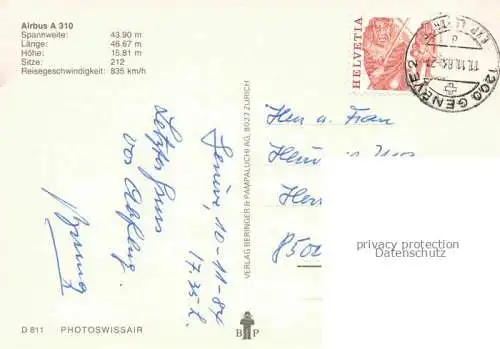 Airbus A 310
Spannweite: 43.90 m
Länge: 46.67 m
Höhe: 15.81 m
Sitze: 212
Reisegeschwindigkeit: 835 km/h
HELVETIA
1200 GENÈVE 2
11.11.84
Genève, 10-11-84
17.35 h.
Letzter Gruss
vor Abflug.
VERLAG BERINGER & PAMPALUCHI AG, 8027 ZÜRICH
Herr u. Frau
Her
850
privacy protection
Datenschutz
D 811 PHOTOSWISSAIR
B P